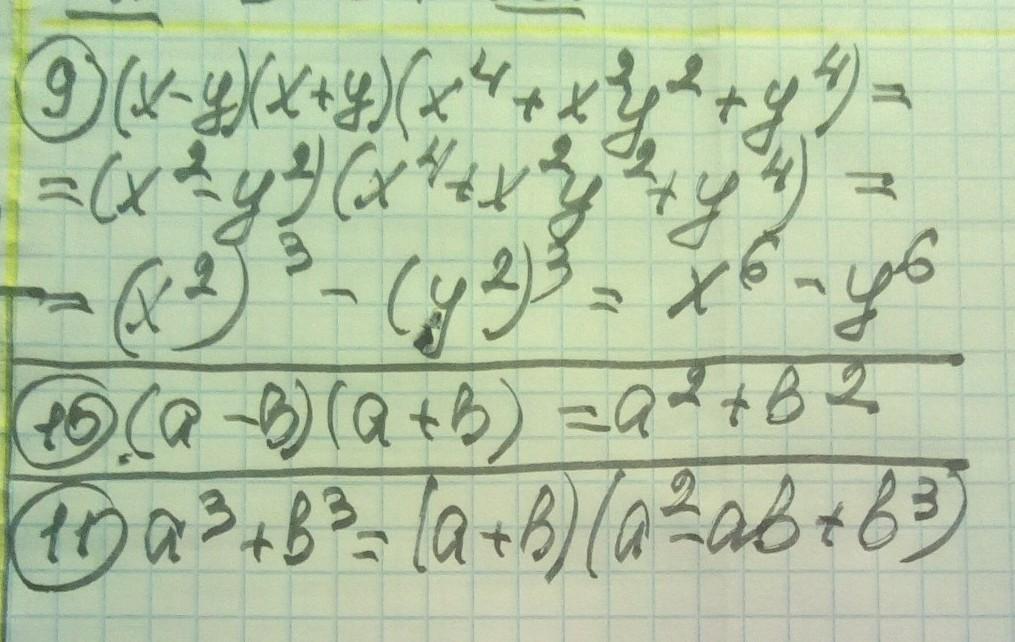 9) (x-y)(x+y)(x⁴+x²y²+y⁴)=
=(x²-y²)(x⁴+x²y²+y⁴)=
=(x²)³-(y²)³=x⁶-y⁶
10. (a-в)(a+в)=a²+в²
11) a³+в³=(a+в)(a²-aв+в³)